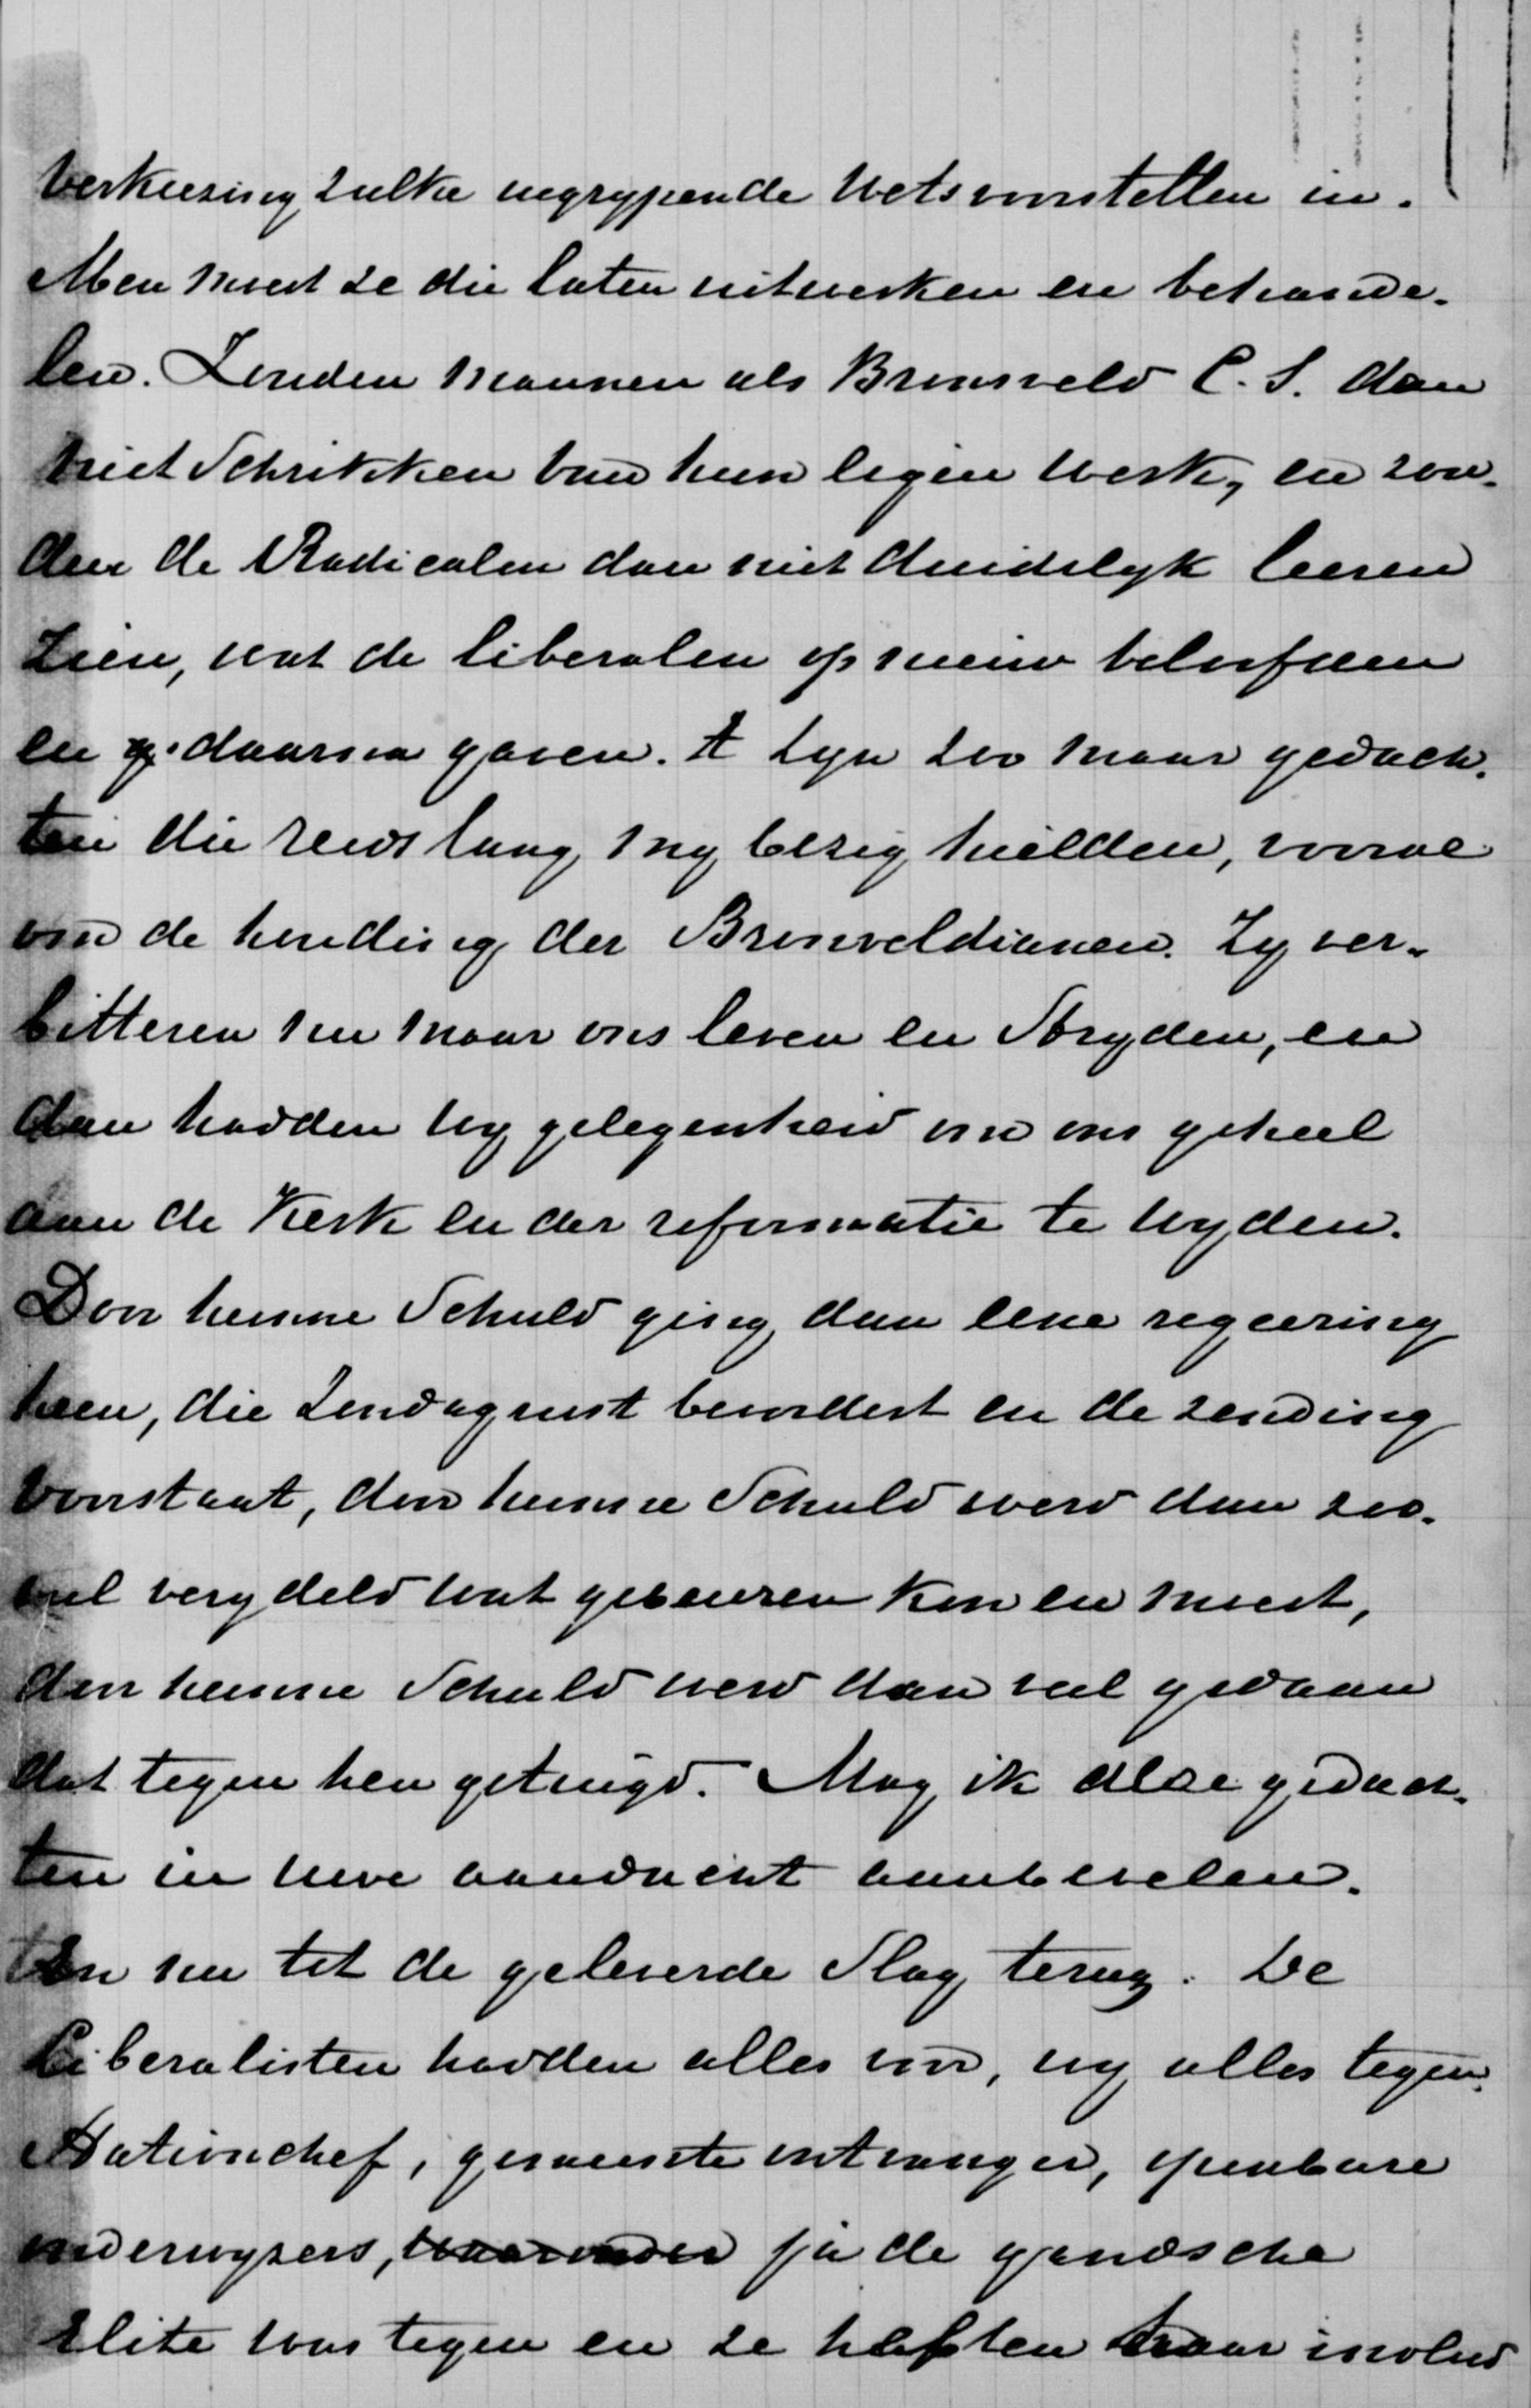 verkiezing zulke ingrypende Wetsvoorstellen in.
Men moest ze die laten uitwerken en behande-
len. Zouden mannen als Bronsveld C.S. dan
niet Schrikken van hun eigen werk, en zou-
den de Radicalen dan niet duidelyk leeren
zien, wat de liberalen op nieuw beloofden
en daarna gaven. 't zyn zoo maar gedach-
ten die reeds lang my bezig hielden, vooral
om de houding der Bronsveldianen. Zy ver-
bitteren nu maar ons leven en Stryden, en
dan hadden wy gelegenheid om ons geheel
aan de Kerk en der reformatie te wyden.
Door hunne Schuld ging dan eene regeering
heen, die Zondagsrust bevordert en de zending
voorstaat, door hunne Schuld werd dan zoo-
veel verydeld wat gebeuren kon en moest,
door hunne Schuld werd dan veel gedaan
dat tegen hen getuigd. Mag ik deze gedach-
ten in uwe aandacht aanbevelen.
En nu tot de geleverde Slag terug. De
Liberalisten hadden alles voor, wy alles tegen.
Stationchef, gemeente ontvanger, openbare
onderwyzers, waaronder ja de gandsche
Elite was tegen en ze hebben haar invloed